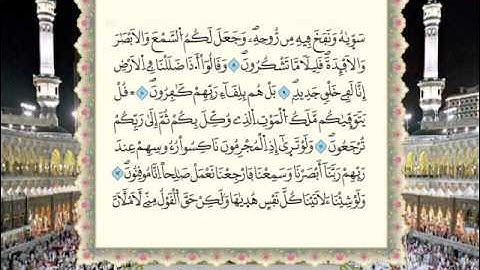 سَوّٜيٰهُ وَنَفَخَ فِيهِ مِن رُّوحِهِۦۖ وَجَعَلَ لَكُمُ اُ۬لسَّمْعَ وَالَابْصَٰرَ
وَالَافْـِٕدَةَۖ قَلِيلًا مَّا تَشْكُرُونَ وَقَالُوٓاْ أَ.ذَا ضَلَلْنَا فِے اِ۬لَارْضِ
إِنَّا لَفِے خَلْقٖ جَدِيدِۢۖ بَلْ هُم بِلِقَآءِ رَبِّهِمْ كَٰفِرُونَۖ قُلْ
يَتَوَفّٜيٰكُم مَّلَكُ اُ۬لْمَوْتِ اِ۬لذِے وُكِّلَ بِكُمْ ثُمَّ إِلَيٰ رَبِّكُمْ
تُرْجَعُونَۖ وَلَوْ تَرٜيٰٓ إِذِ اِ۬لْمُجْرِمُونَ نَاكِسُواْ رُءُوسِهِمْ عِندَ
رَبِّهِمْ رَبَّنَآ أَبْصَرْنَا وَسَمِعْنَا فَارْجِعْنَا نَعْمَلْ صَٰلِحاً اِنَّا مُوقِنُونَۖ
وَلَوْ شِئْنَا ءَلَاتَيْنَا كُلَّ نَفْسٍ هُدٜيٰهَا وَلَٰكِنْ حَقَّ اَ۬لْقَوْلُ مِنِّے لَأَمْلَأَنَّ